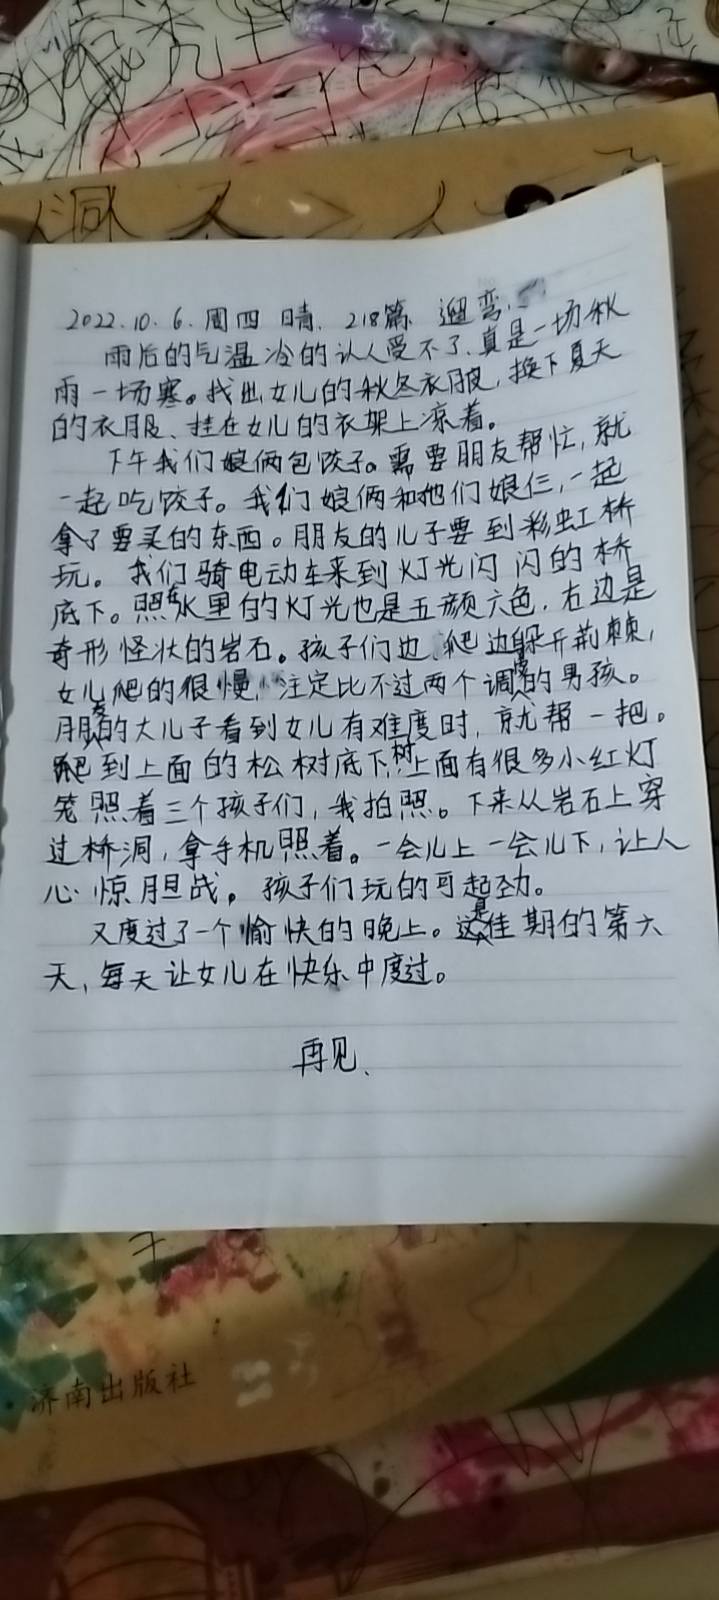 洞
2022.10.6.周四 晴. 218篇. 遛弯.
雨后的气温冷的认人受不了、真是一场秋
雨一场寒。找出女儿的秋冬衣服，换下夏天
的衣服、挂在女儿的衣架上凉着。
下午我们娘俩包饺子。需要朋友帮忙，就
一起吃饺子。我们娘俩和他们娘仨，一起
拿了要买的东西。朋友的儿子要到彩虹桥
玩。我们骑电动车来到灯光闪闪的桥
底下。照在水里的灯光也是五颜六色，右边是
奇形怪状的岩石。孩子们边爬边躲开荆棘，
女儿爬的很慢，注定比不过两个调皮的男孩。
朋友的大儿子看到女儿有难度时，就帮一把。
爬到上面的松树底下，树上面有很多小红灯
笼照着三个孩子们，我拍照。下来从岩石上穿
过桥洞，拿手机照着。一会儿上一会儿下，让人
心惊胆战。孩子们玩的可起劲。
又度过了一个愉快的晚上。这是佳期的第六
天，每天让女儿在快乐中度过。
再见、
济南出版社